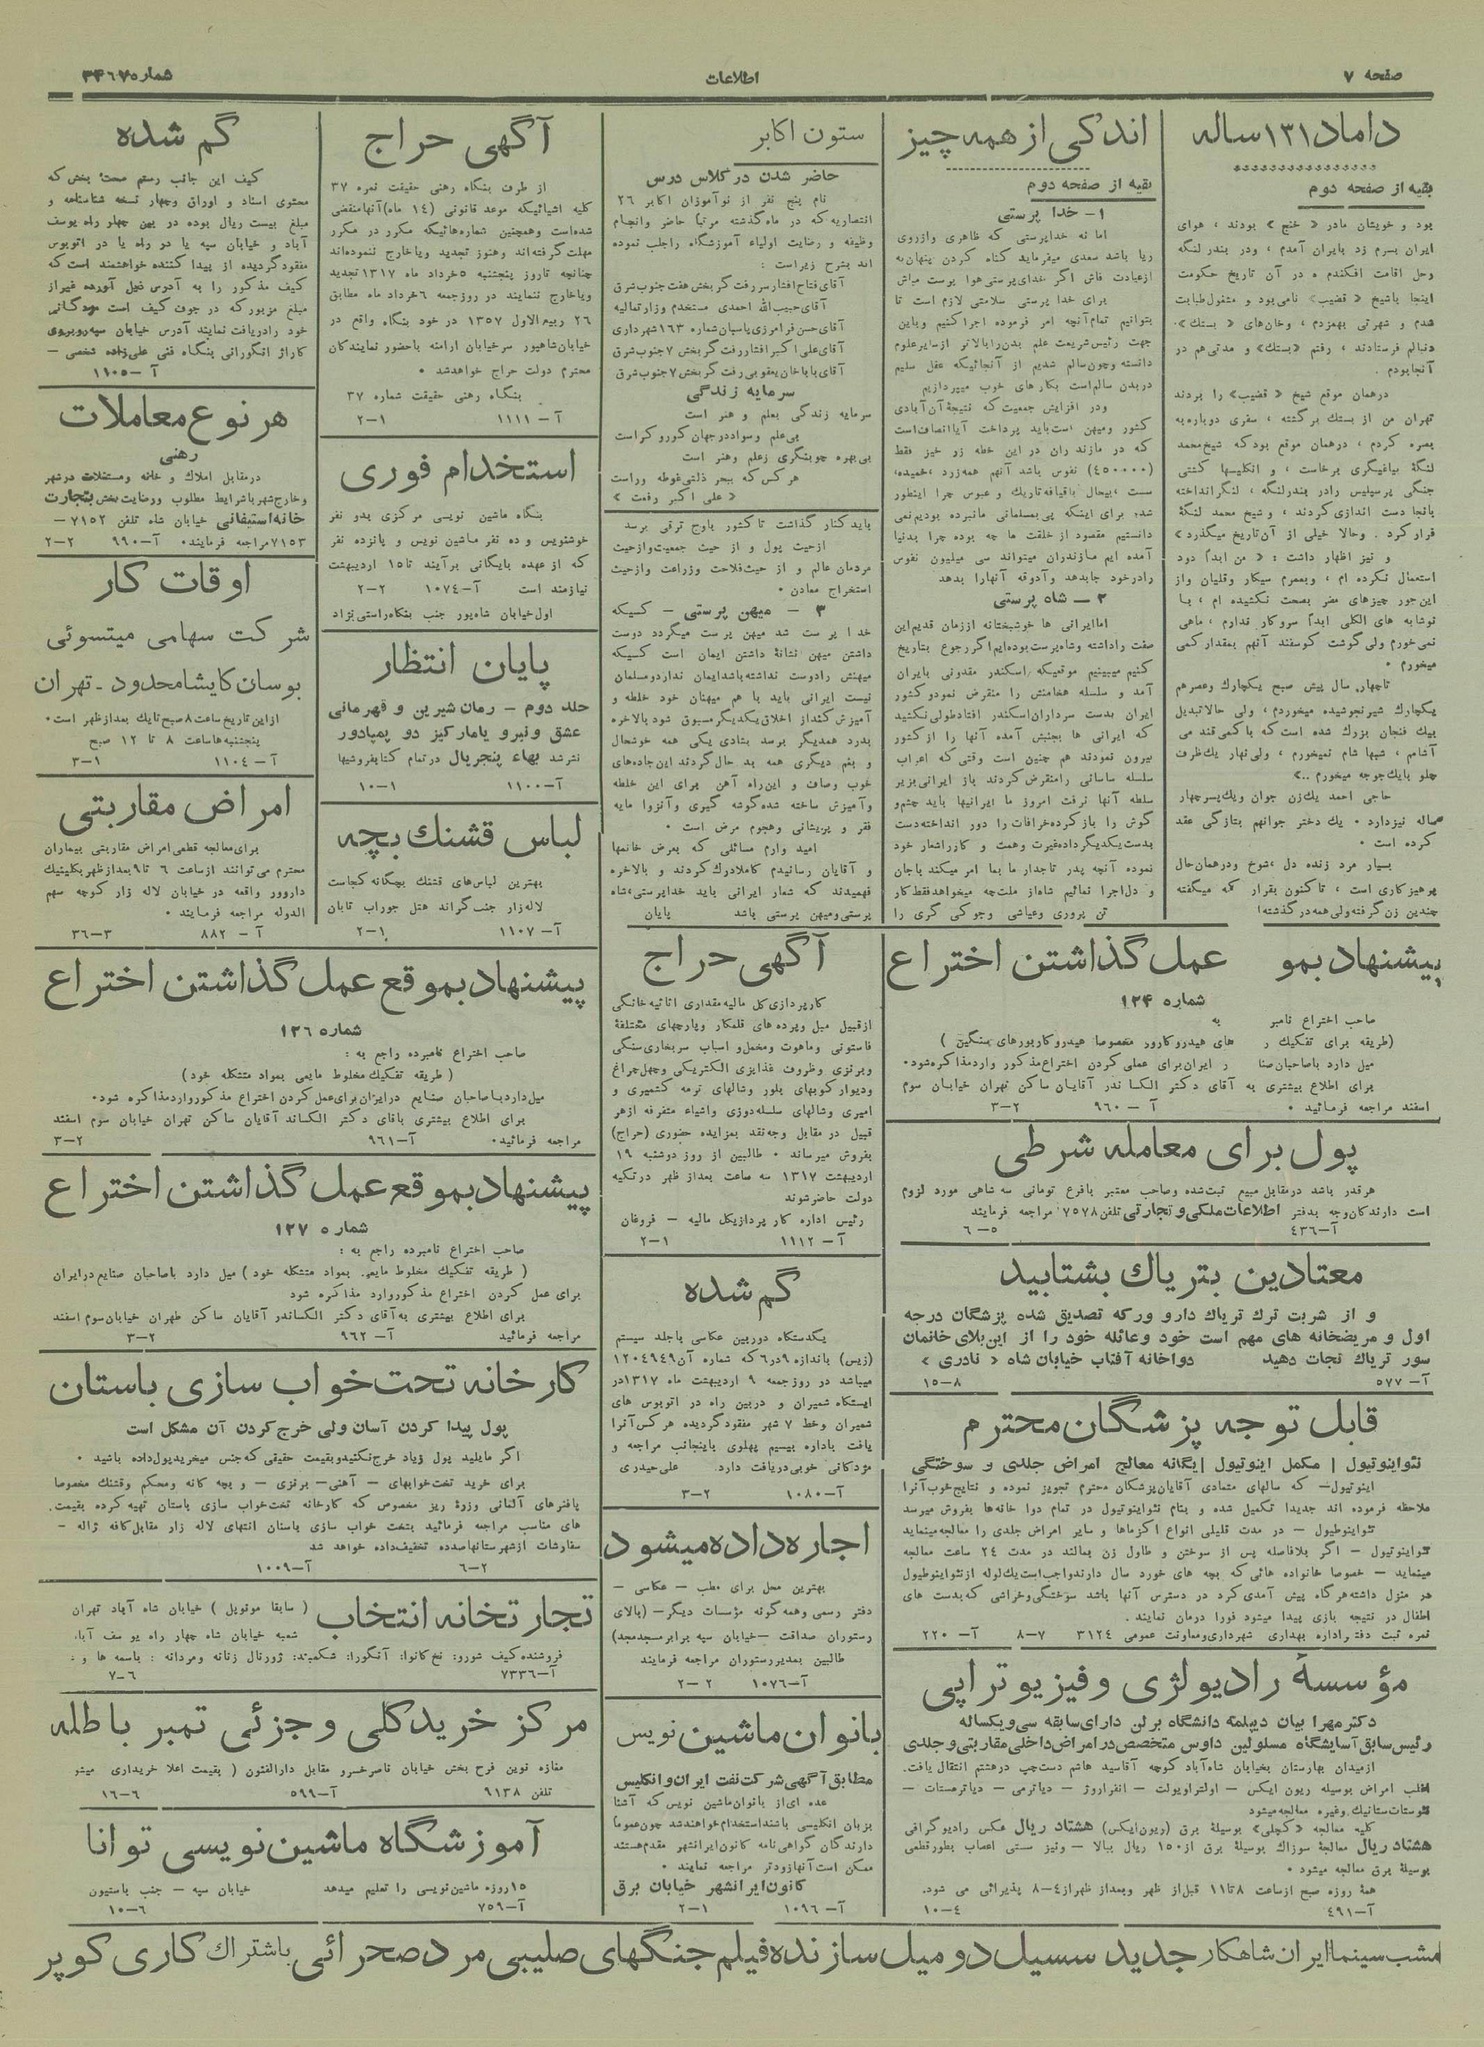 صفحه ۷
اطلاعات
شماره ۳۴۶۷
داماد ۱۳۱ ساله
بقیه از صفحه دوم
بود و خویشان مادر « خنج » بودند ، هوای
ایران بسرم زد بایران آمدم ، ودر بندر لنگه
وحل اقامت افکندم ه در آن تاریخ حکومت
اینجا باشیخ « قضیب » نامی بود و مشغول طبابت
شدم و شهرتی بهمزدم ، وخان‌های « بستک »
دنبالم فرستادند ، رفتم «بستک» و مدتی هم در
آنجا بودم .
درهمان موقع شیخ « قضیب» را بردند
تهران من از بستک برگشته ، سفری دوباره به
بصره کردم ، درهمان موقع بود که شیخ محمد
لنگهٔ بیاغیگری برخاست ، و انگلیسها کشتی
جنگی پرسپلیس رادر بندرلنگه ، لنگرانداخته
بانجا دست اندازی کردند ، و شیخ محمد لنگهٔ
فرار کرد . وحالا خیلی از آن تاریخ میگذرد »
و نیز اظهار داشت : « من ابداً دود
استعمال نکرده ام ، وبعمرم سیگار وقلیان واز
این جور چیزهای مضر بصحت نکشیده ام ، با
نوشابه های الکلی ابداً سروکار ندارم ، ماهی
نمی‌خورم ولی گوشت گوسفند آنهم بمقدار کمی
میخورم *
تاچهار سال پیش صبح یکچارک وعصرهم
یکچارک شیر نجوشیده میخوردم ، ولی حالا تبدیل
بیک فنجان بزرگ شده است که با کمی قند می
آشامم ، شبها شام نمیخورم ، ولی نهار یک ظرف
چلو بایک جوجه میخورم ..»
حاجی احمد یک زن جوان ویک پسر چهار
ساله نیز دارد * یک دختر جوانهم بتازگی عقد
کرده است *
بسیار مرد زنده دل ، شوخ ودرهمان حال
پرهیزکاری است ، تا کنون بقرار که میگفته
چندین زن گرفته ولی همه در گذشته !
اندکی از همه چیز
بقیه از صفحه دوم
۱- خدا پرستی
اما نه خداپرستی که ظاهری وازروی
ریا باشد سعدی میفرماید گناه کردن پنهان به
ازعبادت فاش اگر خدای پرستی هوا پرست مباش
برای خدا پرستی سلامتی لازم است تا
بتوانیم تمام آنچه امر فرموده اجرا کنیم وباین
جهت رئیس شریعت علم بدن را بالاتر ازسایر علوم
دانسته وچون سالم شدیم از آنجائیکه عقل سلیم
در بدن سالم است بکارهای خوب میپردازیم
ودر افزایش جمعیت که نتیجهٔ آن آبادی
کشور ومیهن است باید پرداخت آیا انصاف است
که در مازندران در این خطه زر خیز فقط
(۴۵۰۰۰۰) نفوس باشد آنهم همه زرد ، خمیده،
سست ، بیحال باقیافه تاریک و عبوس چرا اینطور
شده برای اینکه پی بمسلمانی مانبرده بودیم نمی
دانستیم مقصود از خلقت ما چه بوده چرا بدنیا
آمده ایم مازندران میتواند سی میلیون نفوس
رادر خود جا بدهد وآذوقه آنهارا بدهد
۲ - شاه پرستی
اما ایرانی ها خوشبختانه اززمان قدیم این
صفت را داشته وشاه پرست بوده ایم اگر رجوع بتاریخ
کنیم میبینیم موقعیکه اسکندر مقدونی بایران
آمد و سلسله هخامنش را منقرض نمود و کشور
ایران بدست سرداران اسکندر افتاد طولی نکشید
که ایرانی ها بجنبش آمده آنها را از کشور
بیرون نمودند هم چنین است وقتی که اعراب
سلسله ساسانی را منقرض کردند باز ایرانی بزیر
سلطه آنها نرفت امروز ما ایرانیها باید چشم و
گوش را باز کرده خرافات را دور انداخته دست
بدست یکدیگر داده غیرت وهمت و کار را شعار خود
نموده آنچه پدر تاجدار ما بما امر میکند باجان
و دل اجرا نمائیم شاه از ملت چه میخواهد فقط کار
تن پروری وعیاشی و جوکی گری را
ستون اکابر
حاضر شدن در کلاس درس
نام پنج نفر از نوآموزان اکابر ۲۶
انتصاریه که در ماه گذشته مرتبا حاضر وانجام
وظیفه و رضایت اولیاء آموزشگاه را جلب نموده
اند بشرح زیر است :
آقای فتاح افشار سررفت گر بخش هفت جنوب شرق
آقای حبیب الله احمدی مستخدم وزارتمالیه
آقای حسن فرامرزی پاسبان شماره ۱۶۳ شهرداری
آقای علی اکبر افشار رفت گر بخش ۷ جنوب شرق
آقای باباخان یعقوبی رفت گر بخش ۷ جنوب شرق
سرمایه زندگی
سرمایه زندگی بعلم و هنر است
بی‌علم وسواد درجهان کور و کر است
بی‌بهره چو بنگری ز علم وهنر است
هر کس که ببحر ذلتی غوطه وراست
« علی اکبر رفعت »
باید کنار گذاشت تا کشور باوج ترقی برسد
ازحیث پول و از حیث جمعیت وازحیث
مردمان عالم و از حیث فلاحت وزراعت وازحیث
استخراج معادن *
۳ - میهن پرستی - کسیکه
خدا پرست شد میهن پرست میگردد دوست
داشتن میهن نشانهٔ داشتن ایمان است کسیکه
میهنش را دوست نداشته باشد ایمان ندارد و مسلمان
نیست ایرانی باید با هم میهنان خود خلطه و
آمیزش کند از اخلاق یکدیگر مسبوق شود بالاخره
بدرد همدیگر برسد بشادی یکی همه خوشحال
و بغم دیگری همه بد حال گردند این جاده‌های
خوب وصاف و این راه آهن برای این خلطه
وآمیزش ساخته شده گوشه گیری و انزوا مایه
فقر و پریشانی وهجوم مرض است *
امید وارم مسائلی که بعرض خانمها
و آقایان رسانیدم کاملا درک کردند و بالاخره
فهمیدند که شعار ایرانی باید خداپرستی، شاه
پرستی و میهن پرستی باشد پایان
آگهی حراج
از طرف بنگاه رهنی حقیقت نمره ۳۷
کلیه اشیائیکه موعد قانونی (۱۴ ماه) آنها منقضی
شده است وهمچنین شماره‌هائیکه مکرر در مکرر
مهلت گرفته اند وهنوز تجدید ویا خارج ننموده‌اند
چنانچه تا روز پنجشنبه ۵ خرداد ماه ۱۳۱۷ تجدید
ویا خارج ننمایند در روز جمعه ۶ خرداد ماه مطابق
۲۶ ربیع الاول ۱۳۵۷ در خود بنگاه واقع در
خیابان شاهپور سرخیابان ارامنه باحضور نمایندگان
محترم دولت حراج خواهد شد *
بنگاه رهنی حقیقت شماره ۳۷
آ - ۱۱۱۱ ۲-۱
استخدام فوری
بنگاه ماشین نویسی مرکزی بدو نفر
خوشنویس و ده نفر ماشین نویس و پانزده نفر
که از عهده بایگانی برآیند تا ۱۵ اردیبهشت
نیازمند است آ-۱۰۷۴ ۲-۲
اول خیابان شاه‌پور جنب بنگاه راستی نژاد
پایان انتظار
جلد دوم - رمان شیرین و قهرمانی
عشق و نیرو یا مارکیز دو پمپادور
نشر شد بهاء پنجریال در تمام کتابفروشیها
آ-۱۱۰۰ ۱۰-۱
لباس قشنگ بچه
بهترین لباس‌های قشنگ بچگانه کجاست
لاله زار جنب گراند هتل جوراب تابان
آ- ۱۱۰۷ ۲-۱
گم شده
کیف این جانب رستم صحت بخش که
محتوی اسناد و اوراق وچهار نسخه شناسنامه و
مبلغ بیست ریال بوده در بین چهار راه یوسف
آباد و خیابان سپه یا دو راه یا در اتوبوس
مفقود گردیده از پیدا کننده خواهشمند است که
کیف مذکور را به آدرس ذیل آورده غیر از
مبلغ مزبور که در جوف کیف است مژدگانی
خود را دریافت نمایند آدرس خیابان سپه روبروی
گاراژ انگورانی بنگاه فنی علی‌زاده شخصی -
آ -۱۱۰۵
هر نوع معاملات
رهنی
درمقابل املاک و خانه ومستغلات در شهر
وخارج شهر باشرایط مطلوب ورضایت بخش بتجارت
خانه استیفائی خیابان شاه تلفن ۷۱۵۲-
۷۱۵۳ مراجعه فرمایند* آ-۹۹۰ ۲-۲
اوقات کار
شرکت سهامی میتسوئی
بوسان کایشا محدود - تهران
از این تاریخ ساعت ۸ صبح تا یک بعدازظهر است *
پنجشنبه‌ها ساعت ۸ تا ۱۲ صبح
آ - ۱۱۰۴ ۳-۱
امراض مقاربتی
برای معالجه قطعی امراض مقاربتی بیماران
محترم می‌توانند از ساعت ۶ تا ۹ بعدازظهر بکلینیک
داروور واقعه در خیابان لاله زار کوچه سهم
الدوله مراجعه فرمایند *
آ - ۸۸۲ ۳۶-۳
پیشنهاد بموقع عمل گذاشتن اختراع
شماره ۱۲۶
صاحب اختراع نامبرده راجع به :
( طریقه تفکیک مخلوط مایعی بمواد متشکله خود )
میل دارد با صاحبان صنایع در ایران برای عمل کردن اختراع مذکور وارد مذاکره شود*
برای اطلاع بیشتری بآقای دکتر الکساند آقایان ساکن تهران خیابان سوم اسفند
مراجعه فرمائید* آ-۹۶۱ ۳-۲
پیشنهاد بموقع عمل گذاشتن اختراع
شماره ۱۲۷
صاحب اختراع نامبرده راجع به :
( طریقه تفکیک مخلوط مایعی بمواد متشکله خود ) میل دارد باصاحبان صنایع در ایران
برای عمل کردن اختراع مذکور وارد مذاکره شود
برای اطلاع بیشتری به آقای دکتر الکساندر آقایان ساکن طهران خیابان سوم اسفند
مراجعه فرمائید آ- ۹۶۲ ۳-۲
کارخانه تخت خواب سازی باستان
پول پیدا کردن آسان ولی خرج کردن آن مشکل است
اگر مایلید پول زیاد خرج نکنید و بقیمت حقیقی که جنس میخرید پول داده باشید *
برای خرید تخت خوابهای - آهنی- برنزی - و بچه گانه ومحکم وقشنگ مخصوصا
بافنرهای آلمانی وزوهٔ ریز مخصوص که کارخانه تخت خواب سازی باستان تهیه کرده بقیمت
های مناسب مراجعه فرمائید بتخت خواب سازی باستان انتهای لاله زار مقابل کافه ژاله -
سفارشات از شهرستانها صد ده تخفیف داده خواهد شد
آ-۱۰۰۹ ۶-۲
تجارتخانه انتخاب
( سابقا مونوپل ) خیابان شاه آباد تهران
شعبه خیابان شاه چهار راه یوسف آباد
فروشنده کیف شورو: نخ کانوا: آنگورا: شکمبند: ژورنال زنانه ومردانه : باسمه ها و
آ-۷۳۳۶ ۷-۶
مرکز خرید کلی و جزئی تمبر باطله
مغازه نوین فرح بخش خیابان ناصر خسرو مقابل دارالفنون ( بقیمت اعلا خریداری میشو
تلفن ۹۱۳۸ آ-۵۹۹ ۱۶-۶
آموزشگاه ماشین نویسی توانا
۱۵ روزه ماشین نویسی را تعلیم میدهد خیابان سپه - جنب باستیون
آ-۷۵۹ ۱۰-۶
آگهی حراج
کارپردازی کل مالیه مقداری اثاثیه خانگی
از قبیل مبل و پرده های قلمکار و پارچهای مختلفهٔ
فاستونی و ماهوت و مخمل و اسباب سر بخاری سنگی
وبرنزی وظروف غذایزی الکتریکی وچهل چراغ
ودیوارکوبهای بلور وشالهای ترمه کشمیری و
امیری وشالهای سلسله دوزی واشیاء متفرقه از هر
قبیل در مقابل وجه نقد بمزایده حضوری (حراج)
بفروش میرساند * طالبین از روز دوشنبه ۱۹
اردیبهشت ۱۳۱۷ سه ساعت بعداز ظهر در تکیه
دولت حاضر شوند
رئیس اداره کارپردازیکل مالیه - فروغان
آ- ۱۱۱۲ ۲-۱
گم شده
یکدستگاه دوربین عکاسی باجلد سیستم
(زیس) باندازه ۹در۶ که شماره آن ۱۲۰۴۹۴۹
میباشد در روز جمعه ۹ اردیبهشت ماه ۱۳۱۷ در
ایستگاه شمیران و دربین راه در اتوبوس های
شمیران وخط ۷ شهر مفقود گردیده هرکس آنرا
یافت باداره بیسیم پهلوی باینجانب مراجعه و
مژدگانی خوبی دریافت دارد. علی حیدری
آ-۱۰۸۰ ۳-۲
اجاره داده میشود
بهترین محل برای مطب - عکاسی -
دفتر رسمی وهمه گونه مؤسسات دیگر-(بالای
رستوران صداقت -خیابان سپه برابر مسجد مجد)
طالبین بمدیر رستوران مراجعه فرمایند
آ-۱۰۷۶ ۲-۲
بانوان ماشین نویس
مطابق آگهی شرکت نفت ایران و انگلیس
عده ای از بانوان ماشین نویس که آشنا
بزبان انگلیسی باشند استخدام خواهند شد چون عموماً
دارندگان گواهی نامه کانون ایرانشهر مقدم هستند
ممکن است آنها زودتر مراجعه نمایند *
کانون ایرانشهر خیابان برق
آ- ۱۰۹۶ ۲-۱
پیشنهاد بمو عمل گذاشتن اختراع
شماره ۱۲۴
صاحب اختراع نامبر به
(طریقه برای تفکیک ر های هیدروکارور مخصوصا هیدروکاربورهای سنگین )
میل دارد باصاحبان صنا ر ایران برای عملی کردن اختراع مذکور وارد مذاکره شود*
برای اطلاع بیشتری به آقای دکتر الکساندر آقایان ساکن تهران خیابان سوم
اسفند مراجعه فرمائید * آ - ۹۶۰ ۳-۲
پول برای معامله شرطی
هر قدر باشد درمقابل مبیع ثبت شده وصاحب معتبر بافرع تومانی سه شاهی مورد لزوم
است دارندگان وجه بدفتر اطلاعات ملکی و تجارتی تلفن ۷۵۷۸ مراجعه فرمایند
آ-۴۳۶ ۶-۵
معتادین بتریاک بشتابید
و از شربت ترک تریاک دارو ورکه تصدیق شده پزشگان درجه
اول و مریضخانه های مهم است خود و عائله خود را از این بلای خانمان
سوز تریاک نجات دهید دواخانه آفتاب خیابان شاه « نادری »
آ- ۵۷۷ ۱۵-۸
قابل توجه پزشگان محترم
نئواینوتیول ! مکمل اینوتیول ! یگانه معالج امراض جلدی و سوختگی
اینوتیول- که سالهای متمادی آقایان پزشکان محترم تجویز نموده و نتایج خوب آنرا
ملاحظه فرموده اند جدیدا تکمیل شده و بنام نئواینوتیول در تمام دوا خانه‌ها بفروش میرسد
نئواینوطیول - در مدت قلیلی انواع اکزماها و سایر امراض جلدی را معالجه مینماید
نئواینوتیول - اگر بلافاصله پس از سوختن و طاول زن بمالند در مدت ۲۴ ساعت معالجه
مینماید - خصوصا خانواده هائی که بچه های خورد سال دارند واجب است یک لوله از نئواینوطیول
در منزل داشته هرگاه پیش آمدی کرد در دسترس آنها باشد سوختگی وخراشی که بدست های
اطفال در نتیجه بازی پیدا میشود فورا درمان نمایند .
نمره ثبت دفتر اداره بهداری شهرداری ومعاونت عمومی ۳۱۲۴ ۸-۷ آ- ۲۲۰
مؤسسهٔ رادیولژی و فیزیوتراپی
دکتر مهرا بیان دیپلمه دانشگاه برلن دارای سابقه سی ویکساله
رئیس سابق آسایشگاه مسلولین داوس متخصص در امراض داخلی مقاربتی و جلدی
از میدان بهارستان بخیابان شاه‌آباد کوچه آقاسید هاشم دست چپ درهشتم انتقال یافت.
اغلب امراض بوسیله ریون ایکس - اولتراویولت - انفراروژ - دیاترمی - دیاترمستات -
توستات ستاتیک وغیره معالجه میشود
کلیه معالجه «کچلی» بوسیلهٔ برق (ریون ایکس) هشتاد ریال عکس رادیوگرافی
هشتاد ریال معالجهٔ سوزاک بوسیلهٔ برق از ۱۵۰ ریال ببالا - ونیز سستی اعصاب بطور قطعی
بوسیلهٔ برق معالجه میشود *
همهٔ روزه صبح از ساعت ۸ تا ۱۱ قبل از ظهر وبعداز ظهر از ۴-۸ پذیرائی می شود.
آ-۴۹۱ ۱۰-۴
امشب سینما ایران شاهکار جدید سسیل دومیل سازنده فیلم جنگهای صلیبی مرد صحرائی باشتراک کاری کوپر